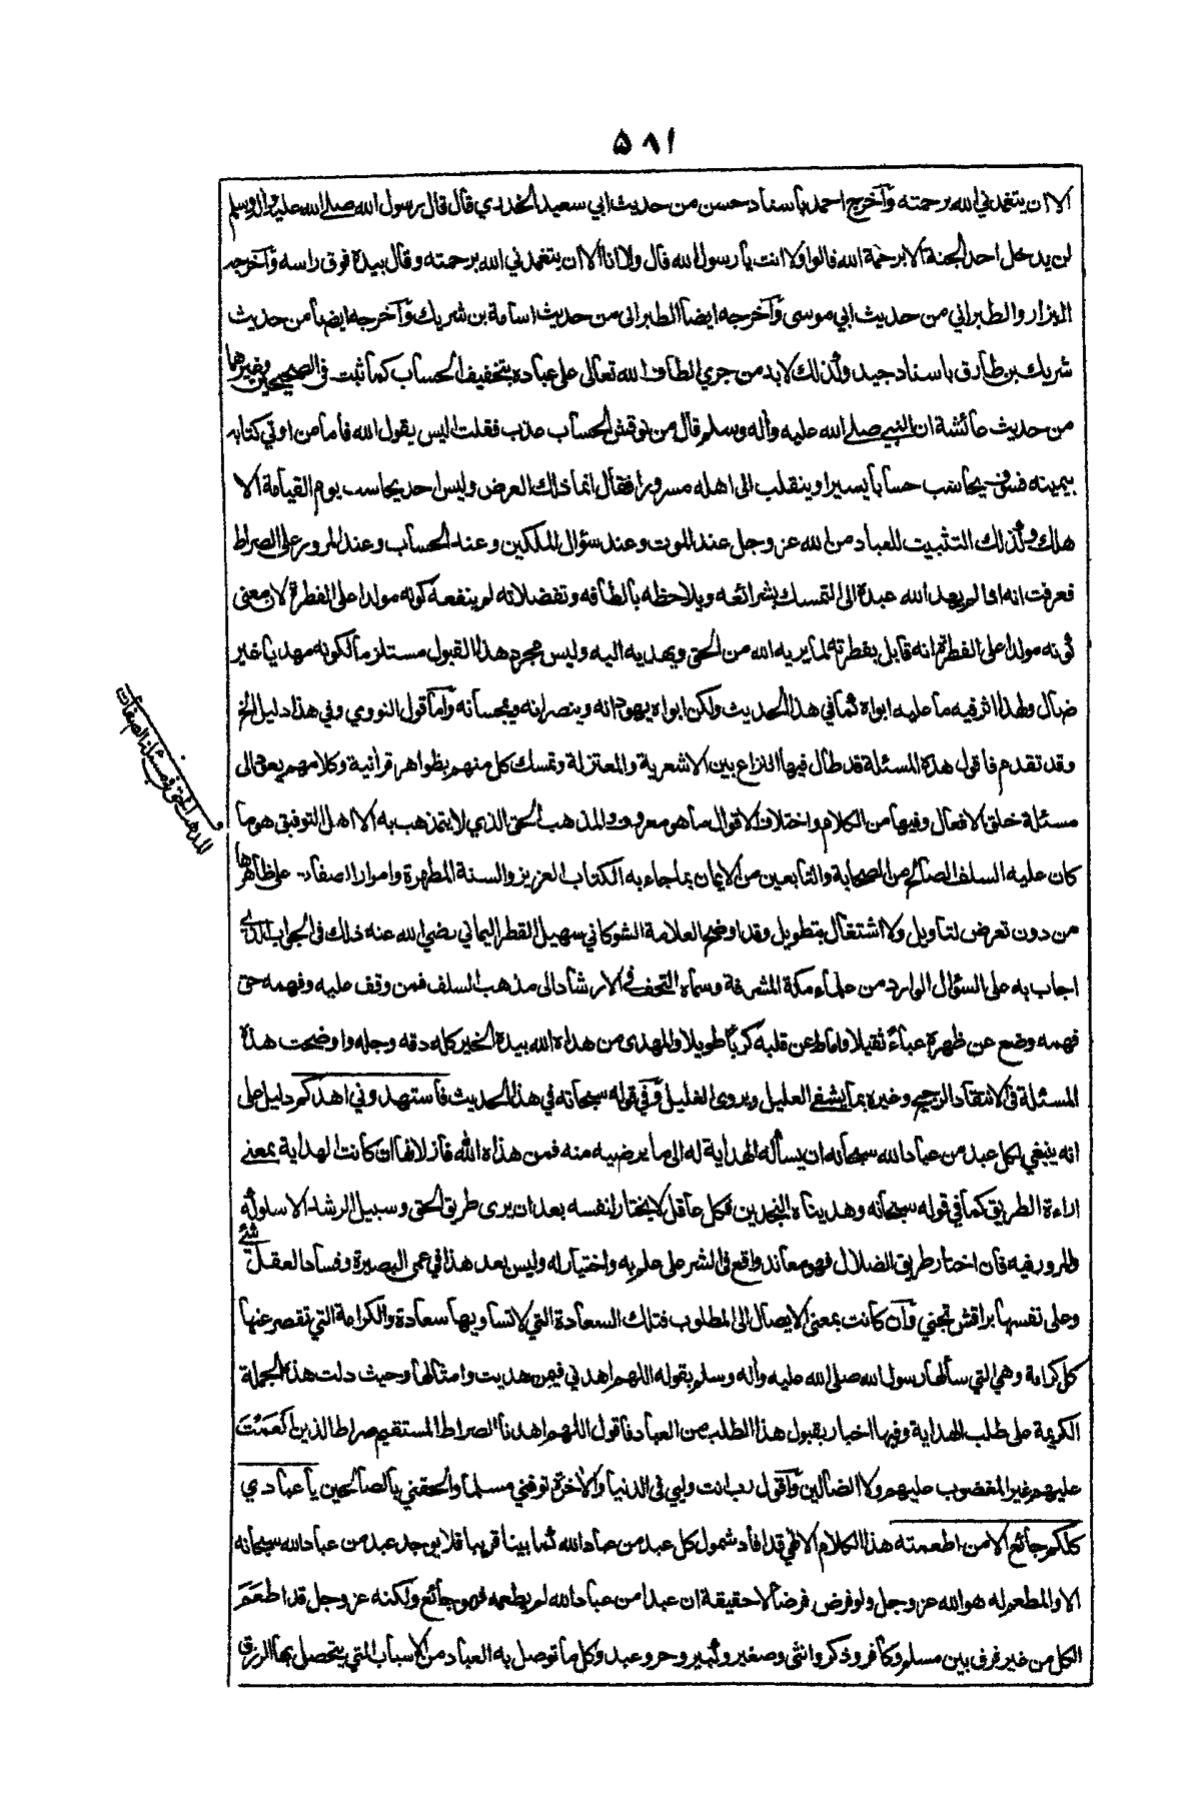 ۵۸۱
الا ان يتغمدني الله برحمته وآخرج احمد باسناد حسن من حديث ابي سعيد الخدري قال قال رسول الله صلى الله عليه وآله وسلم
لن يدخل احد الجنة الا برحمة الله قالوا ولا انت يا رسول الله قال ولا انا الا ان يتغمدني الله برحمته وقال بيده فوق راسه وآخرجه
البزار والطبراني من حديث ابي موسى وآخرجه ايضا الطبراني من حديث اسامة بن شريك وآخرجه ايضا من حديث
شريك بن طارق باسناد جيد وكذلك لا بد من جري الطاف الله تعالى على عباده بتخفيف الحساب كما ثبت في الصحيحين وغيرهما
من حديث عائشة ان النبي صلى الله عليه وآله وسلم قال من نوقش الحساب عذب فقلت اليس يقول الله فاما من اوتي كتابه
بيمينه فسوف يحاسب حسابا يسيرا وينقلب الى اهله مسرورا فقال انما ذلك العرض وليس احد يحاسب يوم القيامة الا
هلك وكذلك التثبيت للعباد من الله عز وجل عند الموت وعند سؤال الملكين وعند الحساب وعند المرور على الصراط
فعرفت انه اذا لم يهد الله عبده الى التمسك بشرائعه ويلاحظه بالطافه وتفضلاته لم ينفعه كونه مولدا على الفطرة لان معنى
كونه مولدا على الفطرة انه قابل بفطرته لما يريه الله من الحق ويهديه اليه وليس مجرد هذا القبول مستلزما لكونه مهديا غير
ضال ولهذا اثر فيه ما عليه ابواه كما في هذا الحديث ولكن ابواه يهودانه وينصرانه ويمجسانه وآما قول النووي وفي هذا دليل الخ
وقد تقدم فاقول هذه المسئلة قد طال فيها النزاع بين الاشعرية والمعتزلة وتمسك كل منهم بظواهر قرآنية وكلامهم يعود الى
مسئلة خلق الافعال وفيها من الكلام واختلاف الاقوال ما هو معروف والمذهب الحق الذي لا يتمذهب به الا اهل التوفيق هو ما
كان عليه السلف الصالح من الصحابة والتابعين من الايمان بما جاء به الكتاب العزيز والسنة المطهرة وامرار الصفات على ظاهرها
من دون تعرض لتاويل ولا اشتغال بتطويل وقد اوضح العلامة الشوكاني سهيل القطر اليماني رضي الله عنه ذلك في الجواب الذي
اجاب به على السؤال الوارد من علماء مكة المشرفة وسماه التحف في الارشاد الى مذهب السلف فمن وقف عليه وفهمه حق
فهمه وضع عن ظهره عباء ثقيلا واماط عن قلبه كربا طويلا والمهدى من هداه الله بيده الخير كله دقه وجله واوضحت هذه
المسئلة في الانتقاد الرجيح وغيره بما يشفي العليل ويروى الغليل وفي قوله سبحانه في هذا الحديث فاستهدوني اهدكم دليل على
انه ينبغي لكل عبد من عباد الله سبحانه ان يسأله الهداية له الى ما يرضيه منه فمن هداه الله فاز لا فان كانت الهداية بمعنى
اراءة الطريق كما في قوله سبحانه وهديناه النجدين فكل عاقل لا يختار لنفسه بعد ان يرى طريق الحق وسبيل الرشاد الا سلوكه
والمرور فيه فان اختار طريق الضلال فهو معاند واقع في الشر على علم به واختيار له وليس بعد هذا في عمى البصيرة وفساد العقل شئ
وعلى نفسها براقش تجني وآن كانت بمعنى الايصال الى المطلوب فتلك السعادة التي لا تساويها سعادة والكرامة التي تقصر عنها
كل كرامة وهي التي سألها رسول الله صلى الله عليه وآله وسلم بقوله اللهم اهدني فيمن هديت وامثالها وحيث دلت هذه الجملة
الكريمة على طلب الهداية وفيها اخبار بقبول هذا الطلب من العباد فاقول اللهم اهدنا الصراط المستقيم صراط الذين انعمت
عليهم غير المغضوب عليهم ولا الضالين وآقول رب انت وليي في الدنيا والآخرة توفني مسلما والحقني بالصالحين يا عبادي
كلكم جائع الا من اطعمته هذا الكلام الالهي قد افاد شمول كل عبد من عباد الله كما بينا قريبا فلا يوجد عبد من عباد الله سبحانه
الا والمطعم له هو الله عز وجل ولو فرض فرضا لا حقيقة ان عبدا من عباد الله لم يطعمه فهو جائع ولكنه عز وجل قد اطعم
الكل من غير فرق بين مسلم وكافر وذكر وانثى وصغير وكبير وحر وعبد وكل ما توصل به العباد من الاسباب التي يتحصل بها الرزق
المذهب الحق في مسئلة الصفات